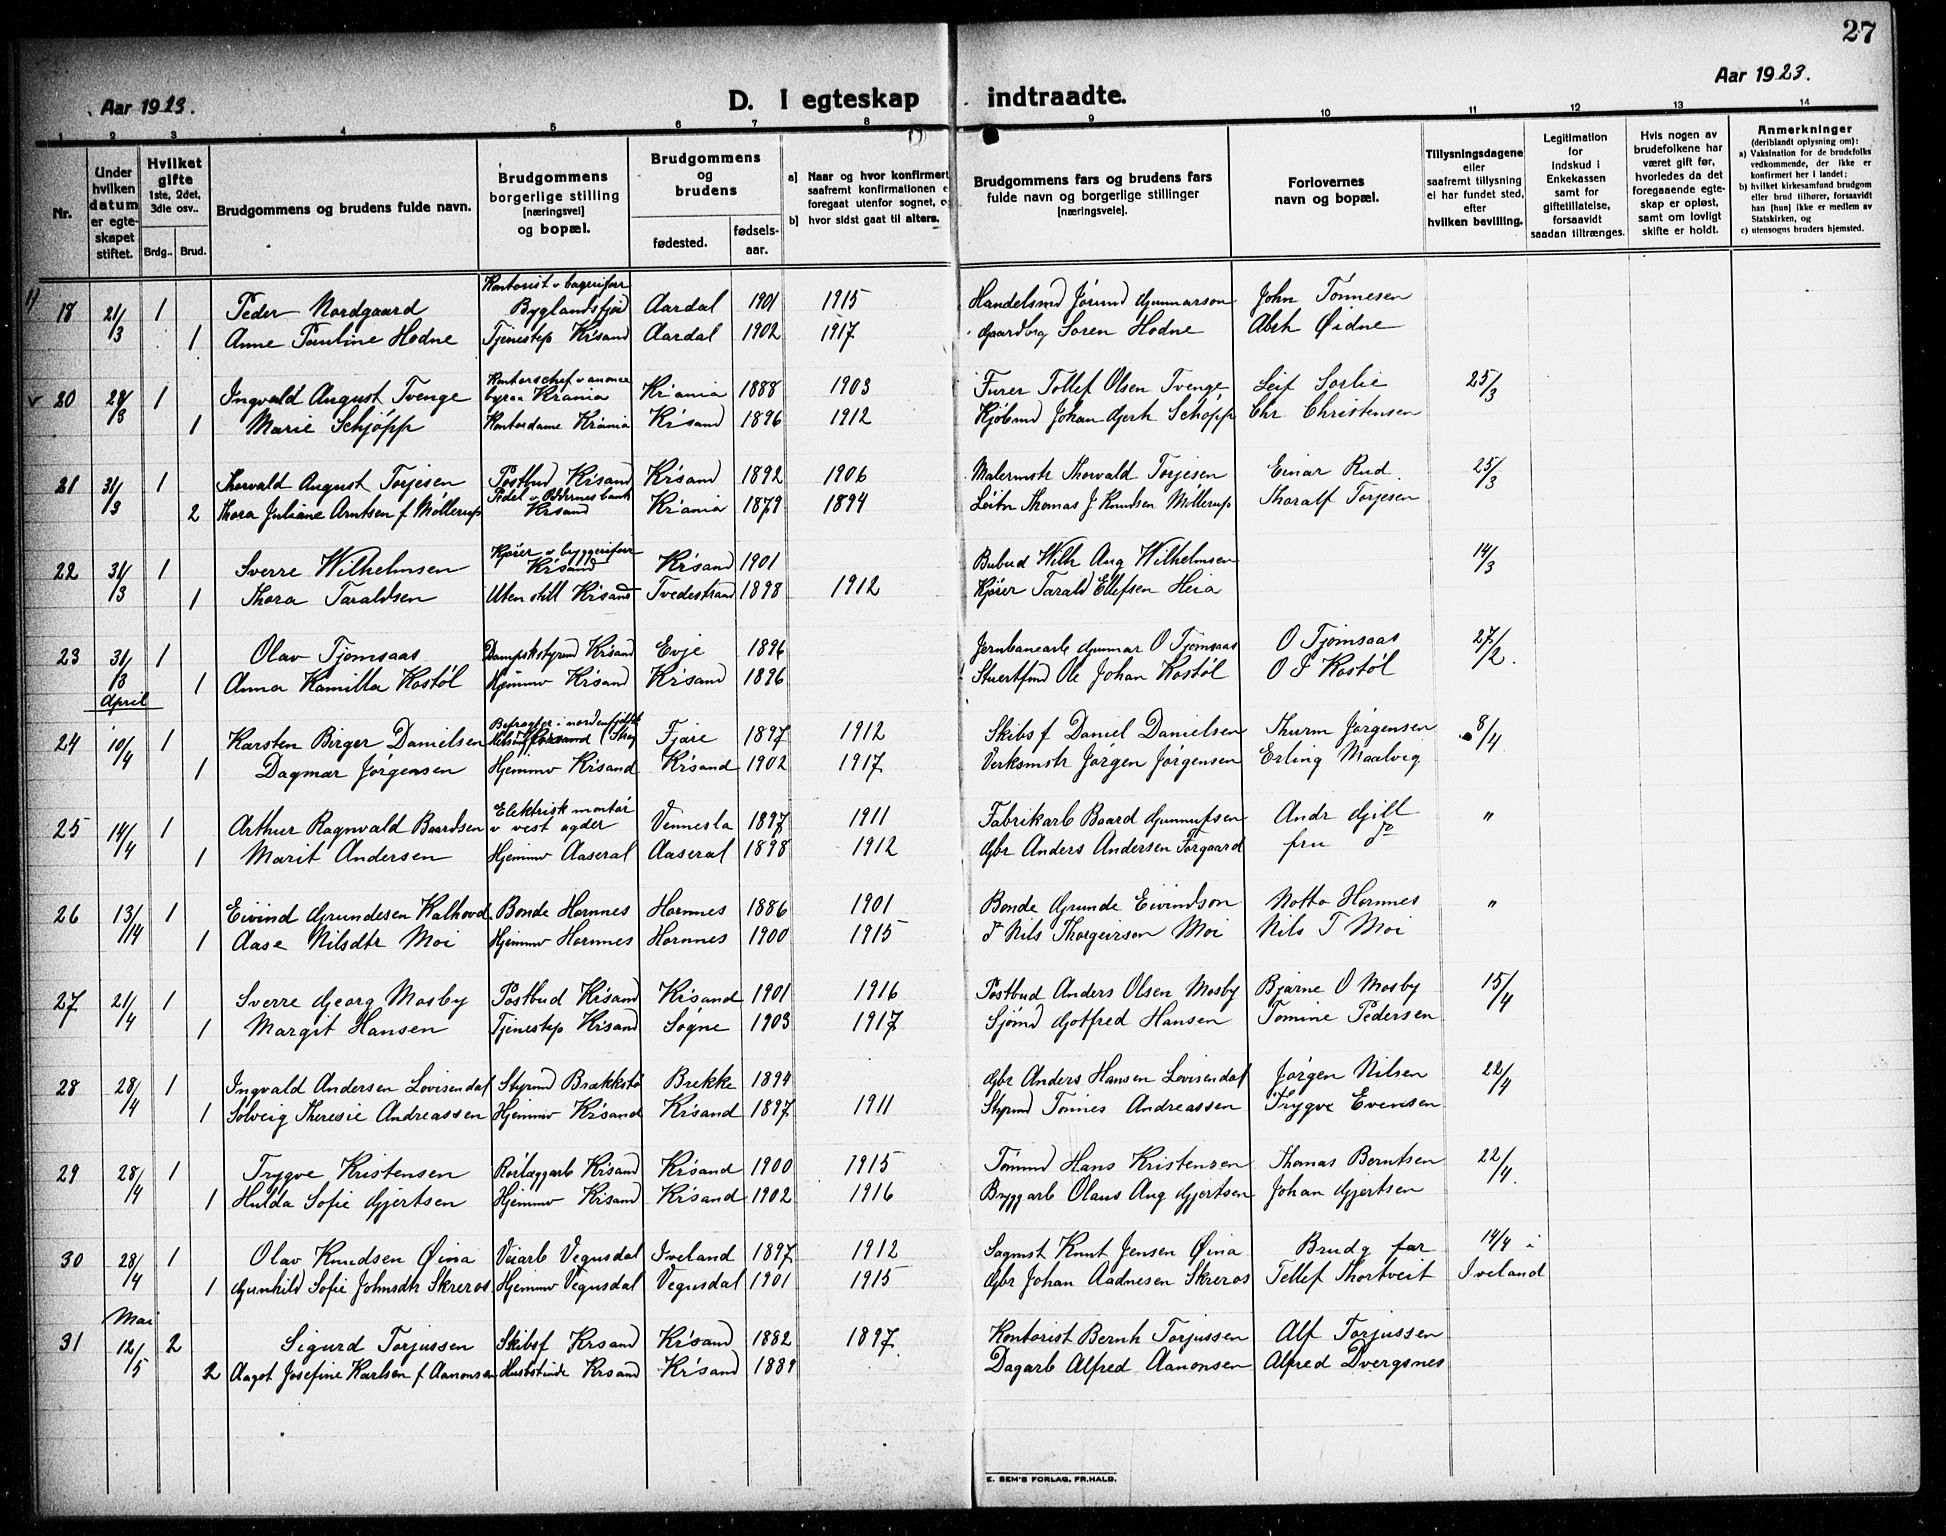 27
Aar 1923.
D. I egteskap indtraadte.
Aar 1923.
1 2 3 4 5 6 7 8 9 10 11 12 13 14
Nr.
Under hvilken datum er egteskapet stiftet.
Hvilket gifte 1ste, 2det, 3die osv..
Brdg.. Brud.
Brudgommens og brudens fulde navn.
Brudgommens borgerlige stilling [næringsvei] og bopæl.
Brudgommens og brudens
fødested. fødselsaar.
a] Naar og hvor konfirmert saafremt konfirmationen foregaat utenfor sognet, o
b) hvor sidst gaat til alters.
Brudgommens fars og brudens fars fulde navn og borgerlige stillinger [næringsveie].
Forlovernes navn og bopæl.
Tillysningsdagene eller saafremt tillysning ei har fundet sted, efter hvilken bevilling.
Legitimation for indskud i Enkekassen samt for giftetillatelse, forsaavidt saadan tiltrænges.
Hvis nogen av brudefolkene har været gift før, hvorledes da det foregaaende egteskap er opløst, samt om lovligt skifte er holdt.
Anmerkninger (deriblandt oplysning om):
a) Vaksination for de brudefolks vedkommende, der ikke er konfirmert her i landet;
b) hvilket kirkesamfund brudgom eller brud tilhører, forsaavidt han [hun] ikke er medlem av Statskirken, og
c) utensogns bruders hjemsted.
18 21/3 1 Peder Nordgaard Kontorist v bageriforr Byglandsfjor Aardal 1901 1915 Handelsmd Jörund Gunnarson John Tönnesen
1 Anne Pauline Hodne Tjenestep Krsand Aardal 1902 1917 Gaardbrg Soren Hodne Abrh Øidne
20 28/3 1 Ingvald August Tvenge Kontorschef v anonce byraa Krania Kr'ania 1888 1903 Furer Tollef Olsen Tvenge Leif Sorlie 25/3
1 Marie Schjöpp Kontordame Krania Kr'sand 1896 1912 Kjöbmd Johan Gerh Schöpp Chr Christensen
21 31/3 1 Thorvald August Torjesen Postbud Kr'sand Kr'sand 1892 1906 Malermstr Thorvald Torjesen Einar Rud 25/3
2 Thora Juliane Arntsen f Möllerup Pedel v Oddernes bank Krsand Kr'ania 1879 1894 Löitn Thomas J Knudsen Möllerup Thoralf Torjesen
22 31/3 1 Sverre Wilhelmsen Kjörer v byggeriforr Kr'sand Kr'sand 1901 Bubud Wilh Aug Wilhelmsen 14/3
1 Thora Taraldsen Uten still Kr'sand Tvedestrand 1898 1912 Kjörer Tarald Ellefsen Heia
23 31/3 1 Olav Tjomsaas Dampskstyrmd Kr'sand Evje 1896 Jernbanearb Gunnar O Tjomsaas O Tjomsaas 27/2.
1 Anna Kamilla Kostöl Hjemmv Kr'sand Kr'sand 1896 Stuertfmd Ole Johan Kostöl O J Kostöl
April
24 10/4 1 Karsten Birger Danielsen Befragter i nordenfjeldsk Fjære 1897 1912 Skibsf Daniel Danielsen Thurm Jörgensen 8/4
1 Dagmar Jörgensen Hjemmv Kr'sand Kr'sand 1902 1917 Verksmstr Jörgen Jörgensen Erling Maalvig
25 14/4 1 Arthur Ragnvald Baardsen Elektrisk montör v vest agder Vennesla 1897 1911 Fabrikarb Baard Gunnufsen Andr Gjill "
1 Marit Andersen Hjemmv Aaseral Aaseral 1898 1912 Gbr Anders Andersen Forgaard fru do
26 13/14 1 Eivind Grundesen Kalhovd Bonde Hornnes Hornnes 1886 1901 Bonde Grunde Eivindson Notto Hornnes "
1 Aase Nilsdtr Moi Hjemmv Hornnes Hornnes 1900 1915 do Nils Thorgeirson Moi Nils T Moi
27 21/4 1 Sverre Georg Mosby Postbud Kr'sand Kr'sand 1901 1916 Postbud Anders Olsen Mosby Bjarne O Mosby 15/4
1 Margit Hansen Tjenestep Kr'sand Sögne 1903 1917 Sjömd Gotfred Hansen Tomine Pedersen
28 28/4 1 Ingvald Andersen Lovisendal Styrmd Brækkstö Brekke 1894 Gbr Anders Hansen Lovisendal Jörgen Nilsen 22/4
1 Solveig Theresie Andreassen Hjemmv Kr'sand Kr'sand 1897 1911 Styrmd Tönnes Andreassen Trygve Evensen
29 28/4 1 Trygve Kristensen Rörlæggarb Kr'sand Kr'sand 1900 1915 Tömmd Hans Kristensen Thomas Berntsen 22/4.
1 Hulda Sofie Gjertsen Hjemmv Kr'sand Kr'sand 1902 1916 Bryggarb Olaus Aug Gjertsen Johan Gjertsen
30 28/4 1 Olav Knudsen Øina Veiarb Vegusdal Iveland 1897 1912 Sagmst Knut Jensen Øina Brudg far 14/4 i
1 Gunhild Sofie Johnsdtr Skreros Hjemmv Vegusdal Vegusdal 1901 1915 Gbr Johan Aadnesen Skreros Tellef Thortveit Iveland
Mai
31 12/5 2 Sigurd Torjussen Skibsf Krsand Kr'sand 1882 1897 Kontorist Bernh Torjussen Alf Torjussen
2 Aagot Josefine Karlsen f Aanonsen Husbstinde Krsand Kr'sand 1889 Dagarb Alfred Aanonsen Alfred Dvergsnes
E. SEM'S FORLAG, FR.HALD.